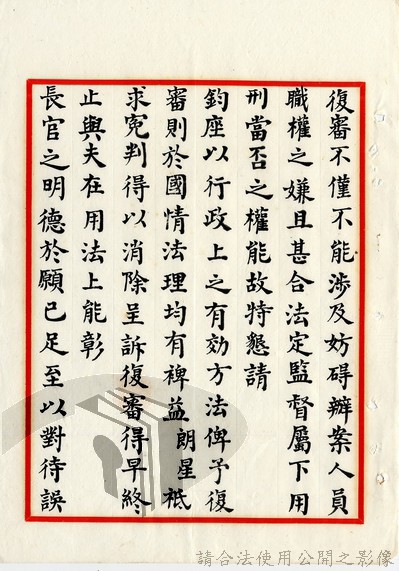 復審不僅不能涉及妨碍辦案人員
職權之嫌且甚合法定監督屬下用
刑當否之權能故特懇請
鈞座以行政上之有効方法俾予復
審則於國情法理均有裨益朗星祗
求冤判得以消除呈訴復審得早終
止與夫在用法上能彰
長官之明德於願已足至以對待誤
請合法使用公開之影像